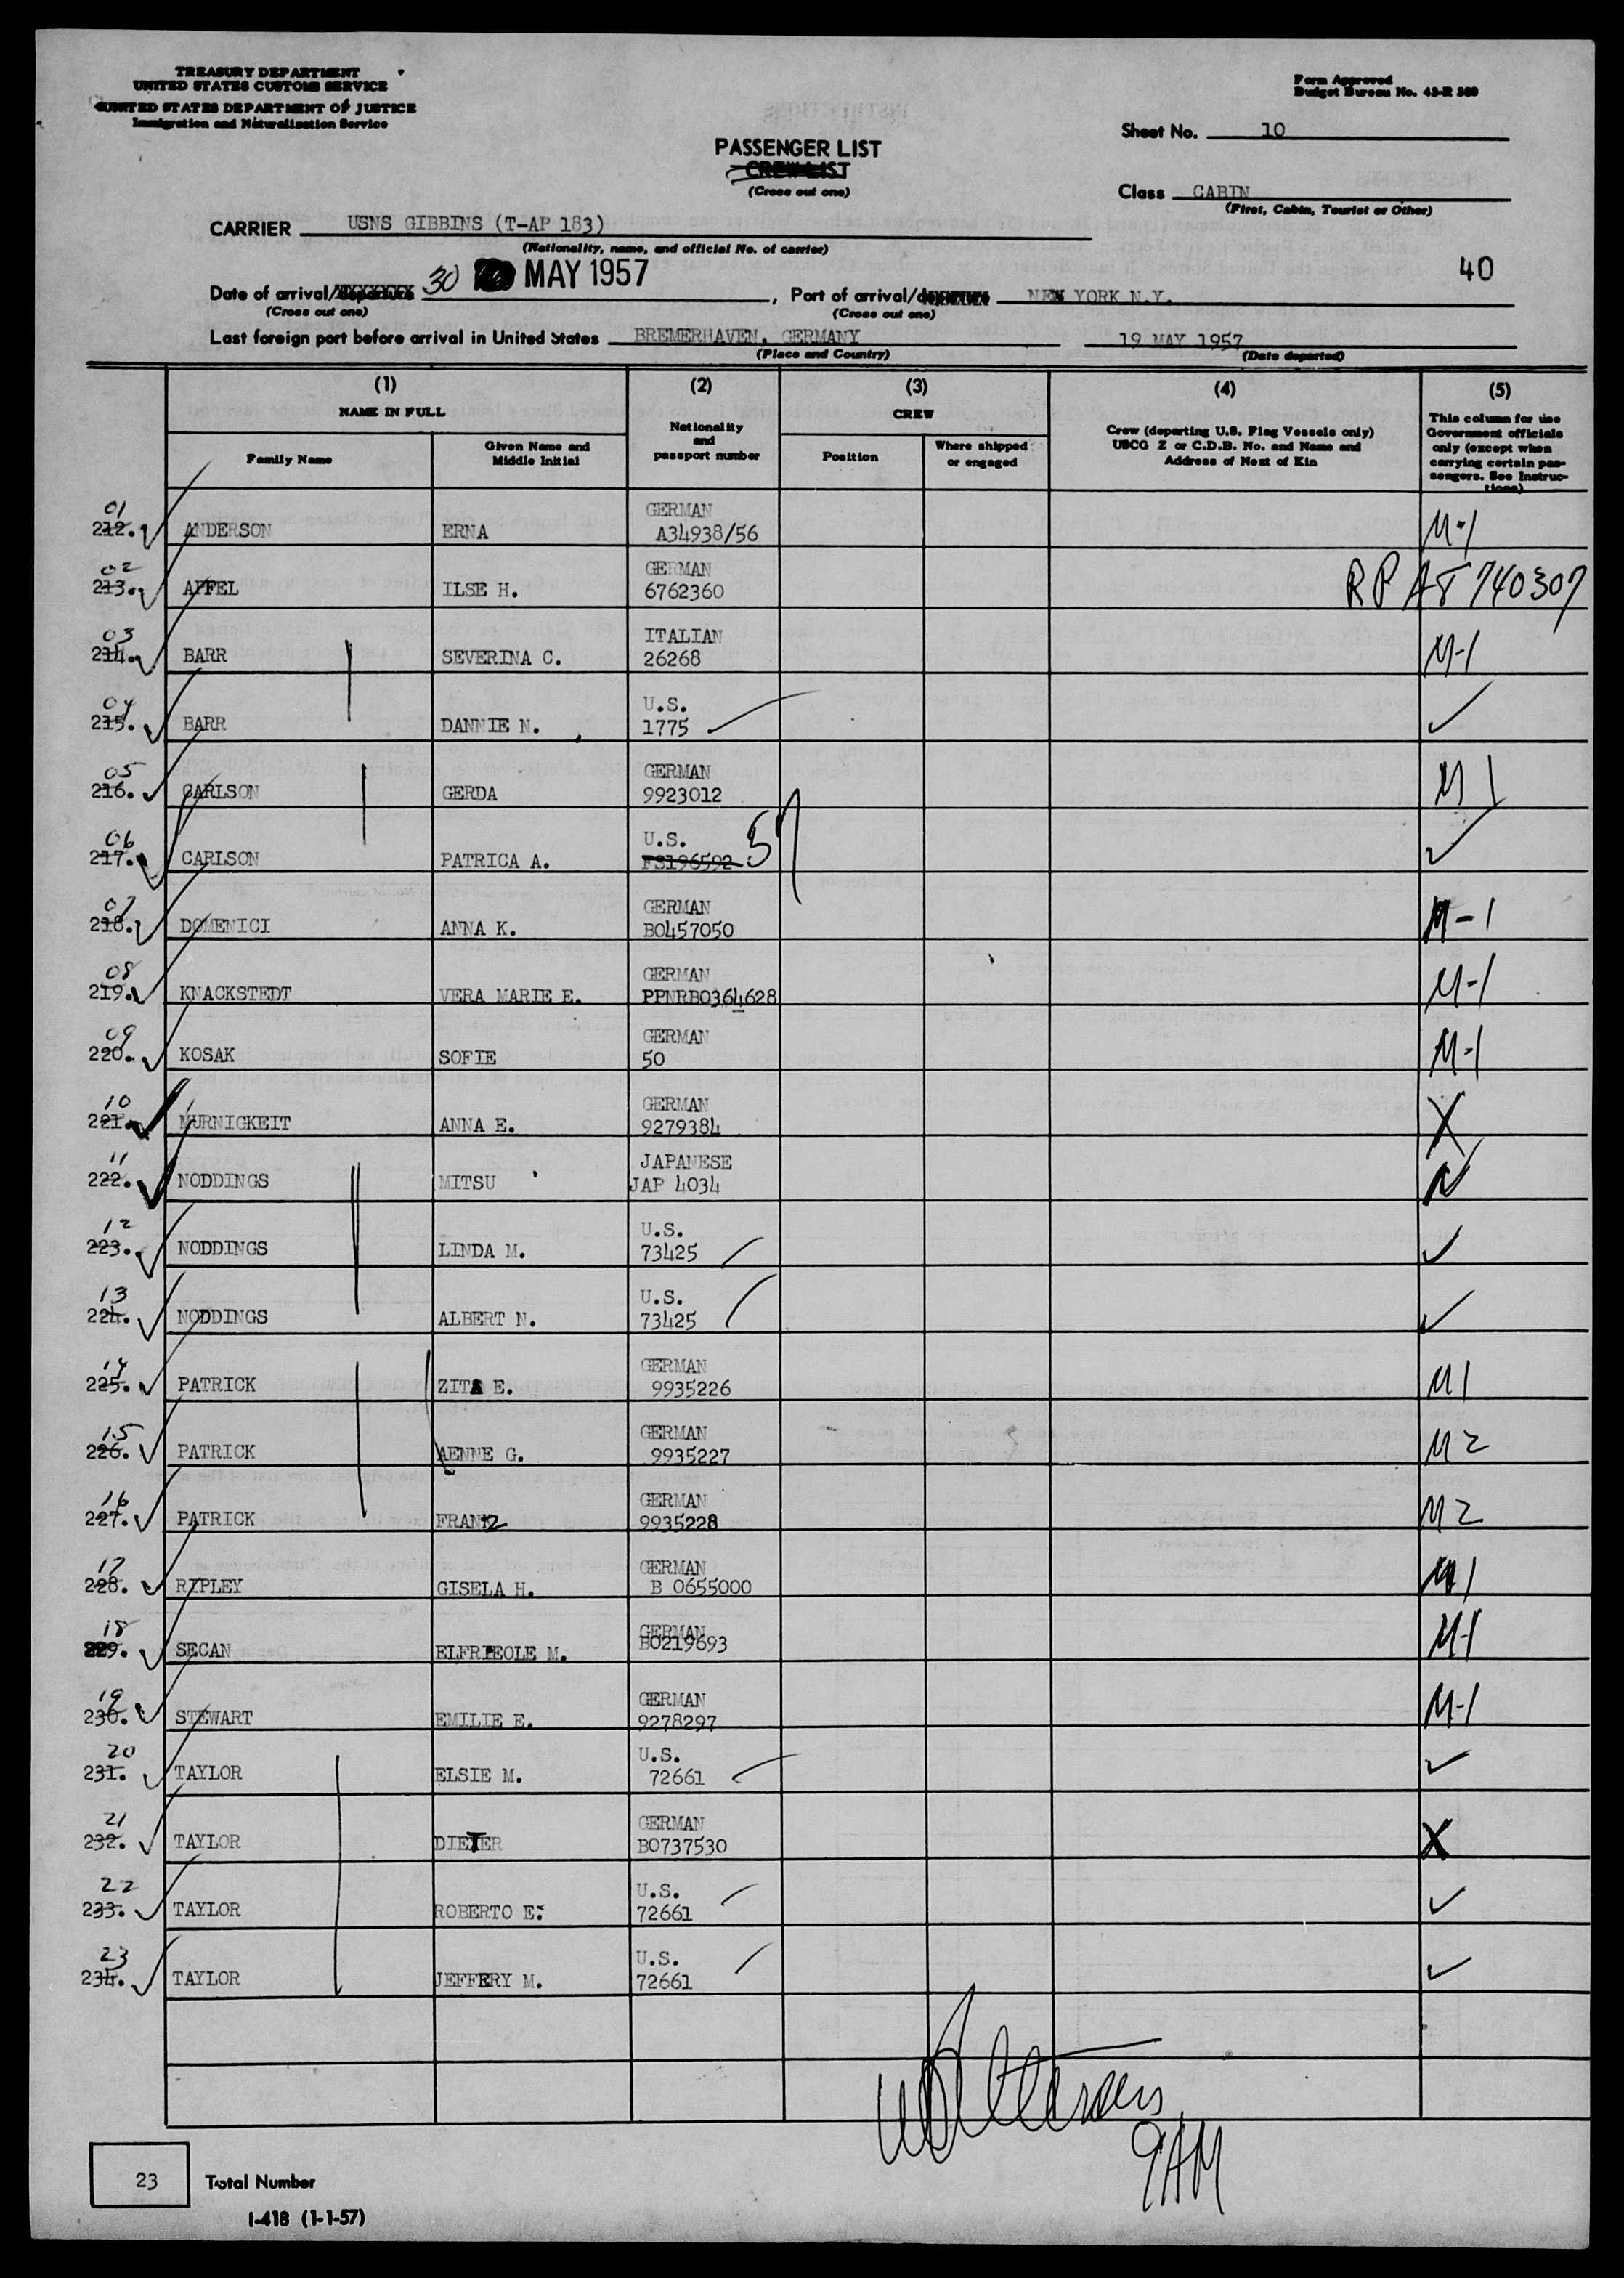 TREASURY DEPARTMENT
UNITED STATES CUSTOMS SERVICE
UNITED STATES DEPARTMENT OF JUSTICE
Immigration and Naturalization Service
Form Approved
Budget Bureau No. 43-R 309
Sheet No. 10
PASSENGER LIST
CREW LIST
(Cross out one)
Class CABIN
(First, Cabin, Tourist or Other)
CARRIER USNS GIBBINS (T-AP 183)
(Nationality, name, and official No. of carrier)
40
Date of arrival/departure 30 MAY 1957, Port of arrival/departure NEW YORK N.Y.
(Cross out one) (Cross out one)
Last foreign port before arrival in United States BREMERHAVEN, GERMANY 19 MAY 1957
(Place and Country) (Date departed)
(1) (2) (3) (4) (5)
NAME IN FULL Nationality and passport number CREW Crew (departing U.S. Flag Vessels only) USCG Z or C.D.B. No. and Name and Address of Next of Kin This column for use Government officials only (except when carrying certain passengers. See Instructions)
Family Name Given Name and Middle Initial Position Where shipped or engaged
01 212. ANDERSON ERNA GERMAN A34938/56 M-1
02 213. APFEL ILSE H. GERMAN 6762360 RP AT 740307
03 214. BARR SEVERINA C. ITALIAN 26268 M-1
04 215. BARR DANNIE N. U.S. 1775
05 216. CARLSON GERDA GERMAN 9923012 M 1
06 217. CARLSON PATRICA A. U.S. FS196592 57
07 218. DOMENICI ANNA K. GERMAN B0457050 M-1
08 219. KNACKSTEDT VERA MARIE E. GERMAN PPNRB0364628 M-1
09 220. KOSAK SOFIE GERMAN 50 M-1
10 221. MURNIGKEIT ANNA E. GERMAN 9279384 X
11 222. NODDINGS MITSU JAPANESE JAP 4034 N
12 223. NODDINGS LINDA M. U.S. 73425
13 224. NODDINGS ALBERT N. U.S. 73425
14 225. PATRICK ZITA E. GERMAN 9935226 M1
15 226. PATRICK AENNE G. GERMAN 9935227 M2
16 227. PATRICK FRANZ GERMAN 9935228 M2
17 228. RIPLEY GISELA H. GERMAN B 0655000 M1
18 229. SECAN ELFRIEOLE M. GERMAN B0219693 M-1
19 230. STEWART EMILIE E. GERMAN 9278297 M-1
20 231. TAYLOR ELSIE M. U.S. 72661
21 232. TAYLOR DIETER GERMAN B0737530 X
22 233. TAYLOR ROBERTO E. U.S. 72661
23 234. TAYLOR JEFFERY M. U.S. 72661
23 Total Number
I-418 (1-1-57)